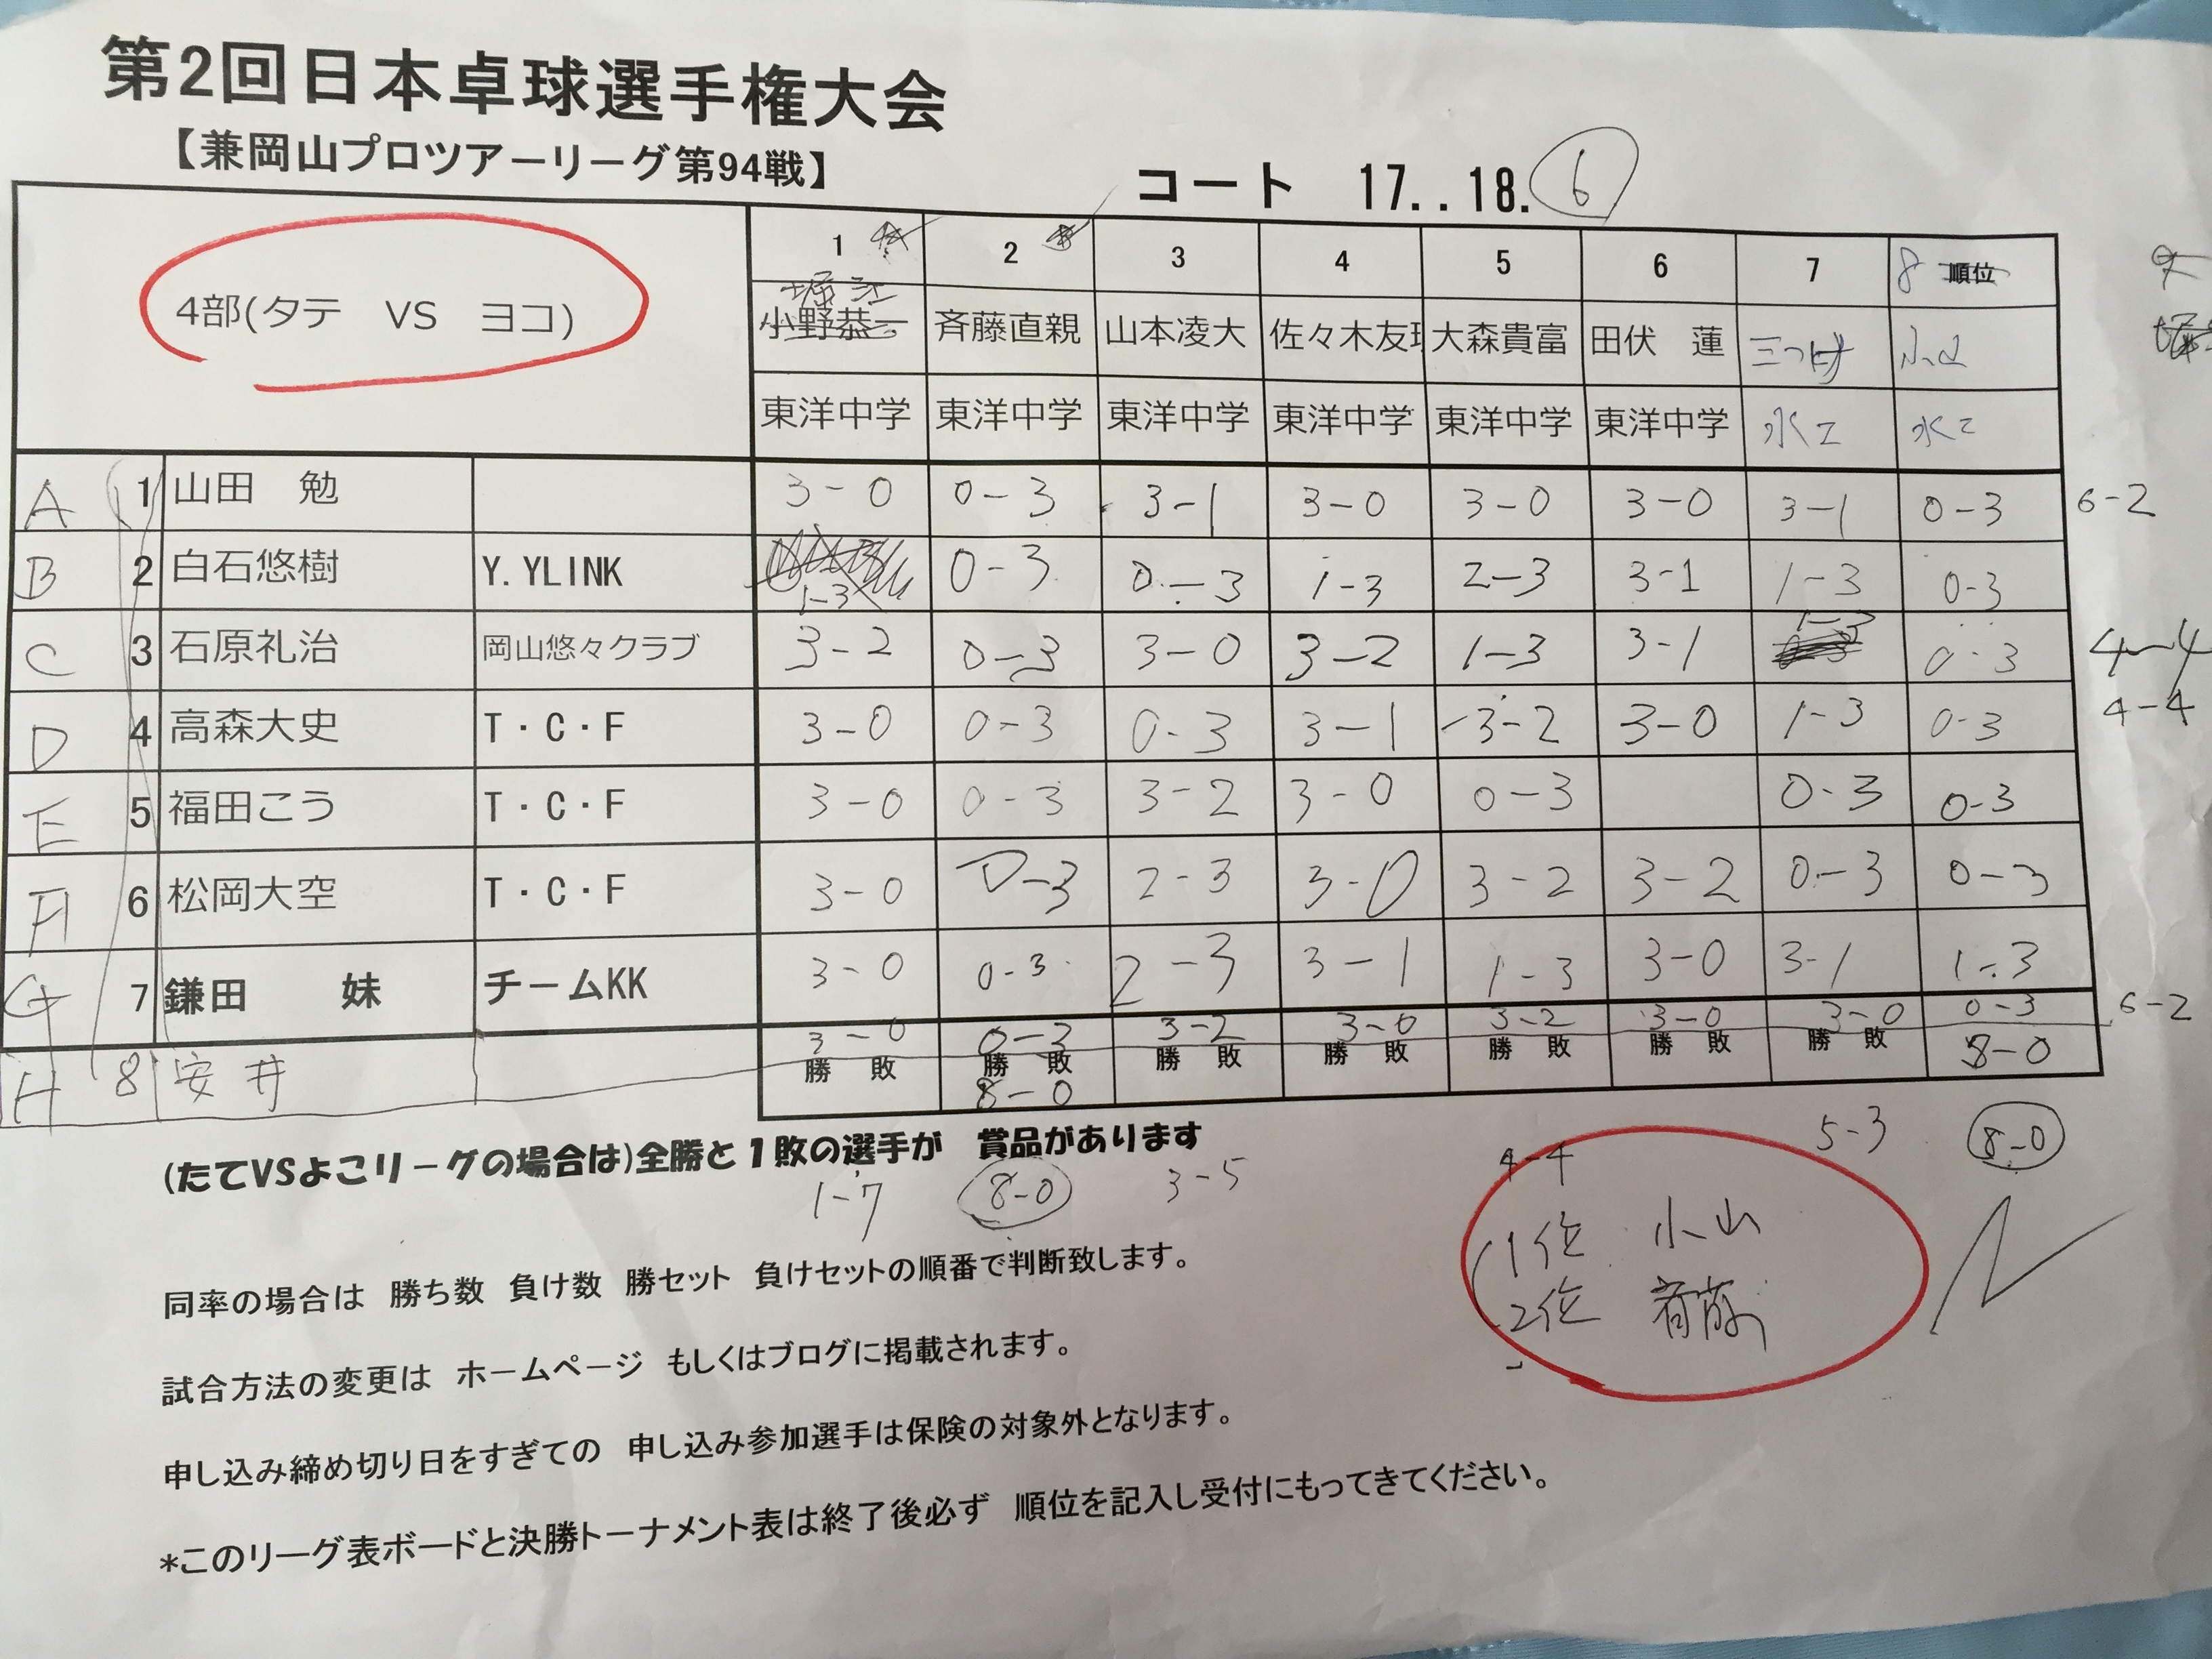 第2回日本卓球選手権大会
【兼岡山プロツアーリーグ第94戦】
コート 17..18. 6
4部(タテ VS ヨコ)
1 2 3 4 5 6 7 8 順位
堀江
小野恭一 斉藤直親 山本凌大 佐々木友 大森貴富 田伏 蓮 三つ 小山
東洋中学 東洋中学 東洋中学 東洋中学 東洋中学 東洋中学 水工 水工
A 1 山田 勉 3-0 0-3 3-1 3-0 3-0 3-0 3-1 0-3 6-2
B 2 白石悠樹 Y.YLINK 1-3 0-3 0-3 1-3 2-3 3-1 1-3 0-3
C 3 石原礼治 岡山悠々クラブ 3-2 0-3 3-0 3-2 1-3 3-1 1-3 0-3 4-4
D 4 高森大史 T・C・F 3-0 0-3 0-3 3-1 3-2 3-0 1-3 0-3 4-4
E 5 福田こう T・C・F 3-0 0-3 3-2 3-0 0-3 0-3 0-3
F 6 松岡大空 T・C・F 3-0 0-3 2-3 3-0 3-2 3-2 0-3 0-3
G 7 鎌田 妹 チームKK 3-0 0-3 2-3 3-1 1-3 3-0 3-1 1-3
H 8 安井 3-0 0-3 3-2 3-0 3-2 3-0 3-0 0-3 6-2
勝 敗 勝 敗 勝 敗 勝 敗 勝 敗 勝 敗 勝 敗 8-0
8-0
(たてVSよこリーグの場合は)全勝と1敗の選手が 賞品があります
1-7 8-0 3-5 4-4 5-3 8-0
1位 小山
2位 斎藤
同率の場合は 勝ち数 負け数 勝セット 負けセットの順番で判断致します。
試合方法の変更は ホームページ もしくはブログに掲載されます。
申し込み締め切り日をすぎての 申し込み参加選手は保険の対象外となります。
*このリーグ表ボードと決勝トーナメント表は終了後必ず 順位を記入し受付にもってきてください。